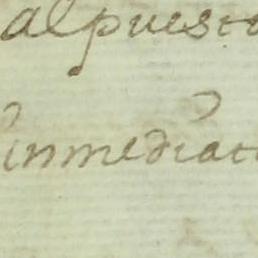 alpuest
inmediat